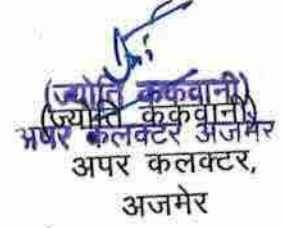 (ज्योति ककवानी)
(ज्योति ककवानी)
अपर कलक्टर अजमेर
अपर कलक्टर,
अजमेर